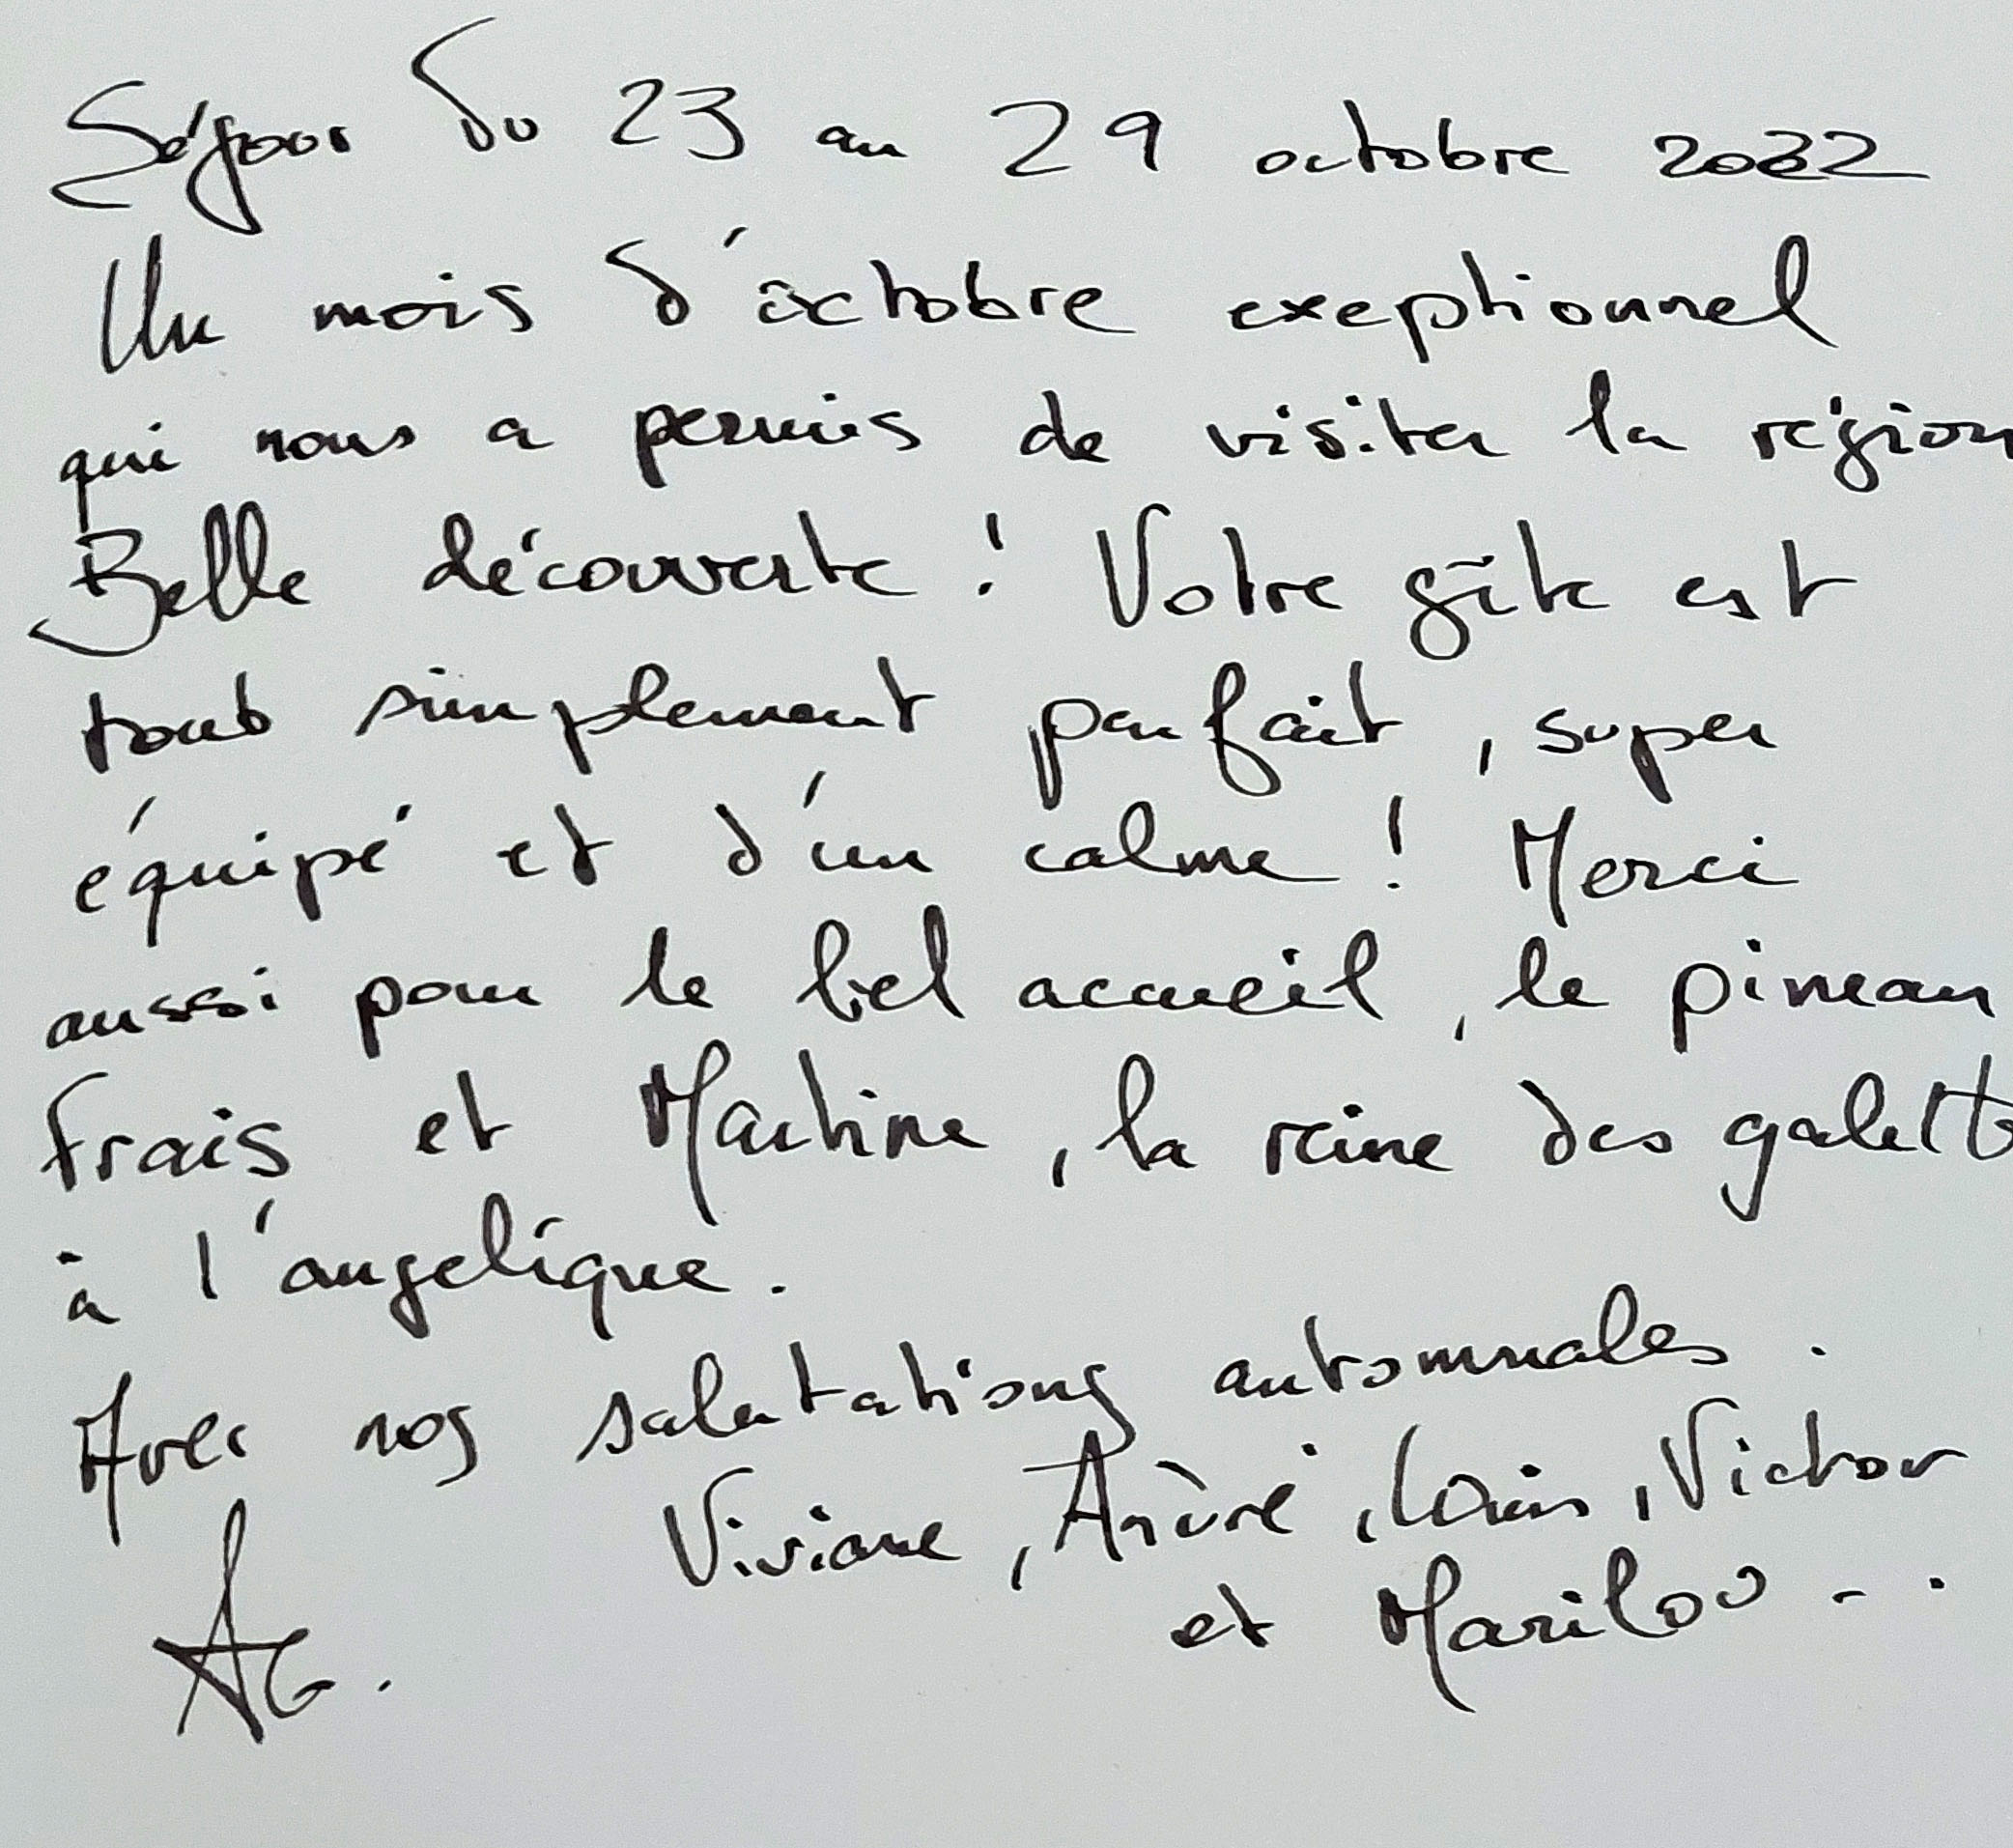 Séjour du 23 au 29 octobre 2022
Un mois d'octobre exeptionnel
qui nous a permis de visiter la région
Belle découverte ! Votre gîte est
tout simplement parfait, super
équipé et d'un calme ! Merci
aussi pour le bel accueil, le pineau
frais et Martine, la reine des galettes
à l'angelique.
Avec nos salutations automnales.
Viviane, André, Louis, Victor
et Marilou...
AG.